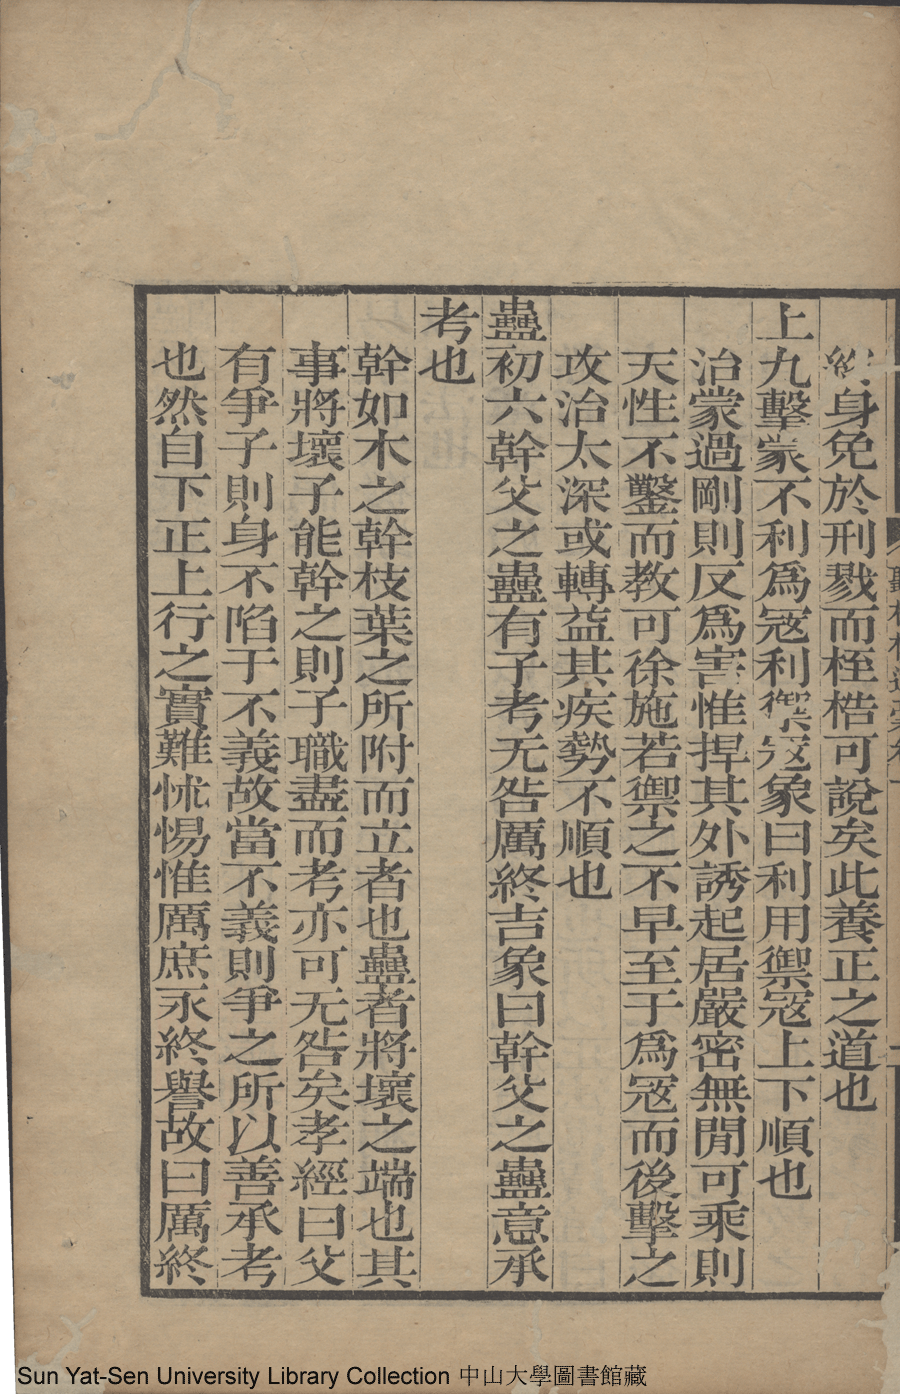 終身免於刑戮而桎梏可說矣此養正之道也
上九擊蒙不利爲寇利禦寇象曰利用禦寇上下順也
治蒙過剛則反爲害惟捍其外誘起居嚴密無閒可乘則
天性不鑿而教可徐施若禦之不早至于爲寇而後擊之
攻治太深或轉益其疾勢不順也
蠱初六幹父之蠱有子考无咎厲終吉象曰幹父之蠱意承
考也
幹如木之幹枝葉之所附而立者也蠱者將壞之端也其
事將壞子能幹之則子職盡而考亦可无咎矣孝經曰父
有爭子則身不陷于不義故當不義則爭之所以善承考
也然自下正上行之實難怵惕惟厲庶永終譽故曰厲終
Sun Yat-Sen University Library Collection 中山大學圖書館藏